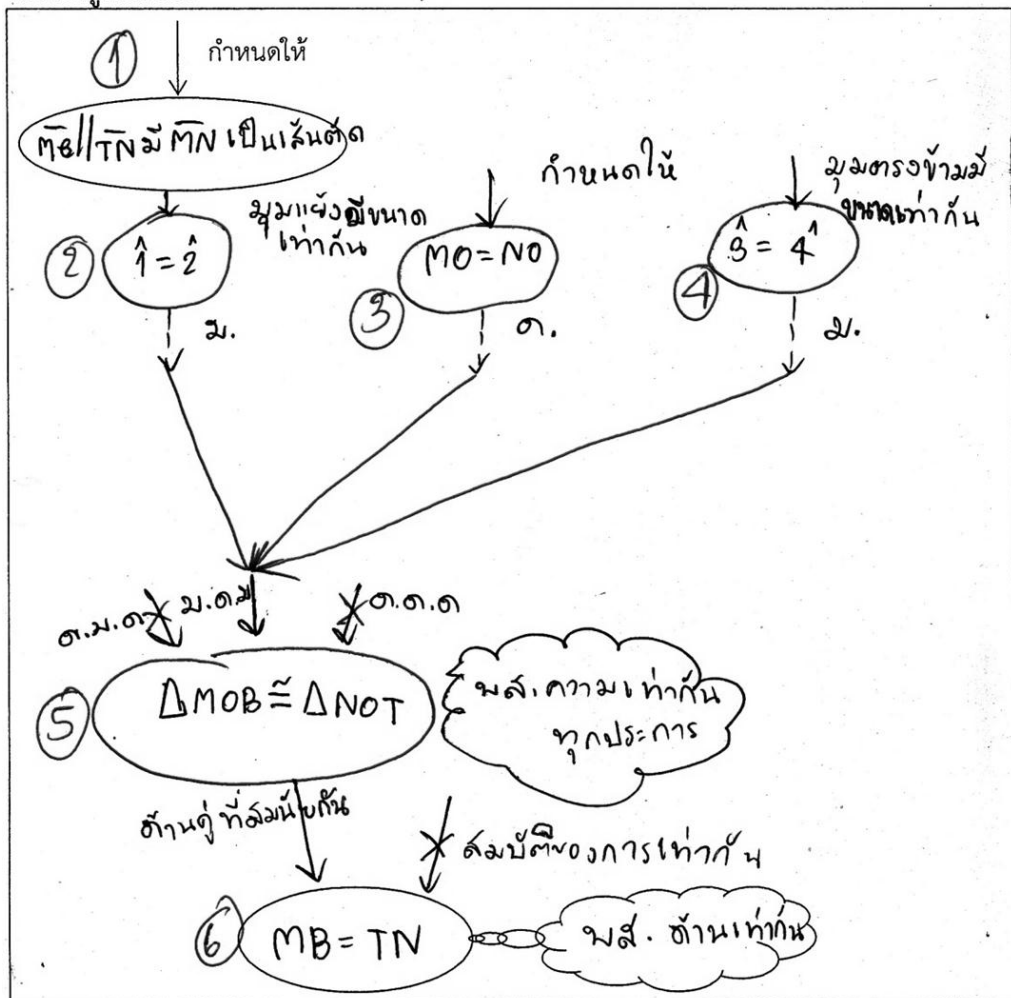 ① กำหนดให้
MB//TN มี MN เป็นเส้นตัด
② 1̂ = 2̂
มุมแย้งมีขนาด
เท่ากัน
ม.
กำหนดให้
③ MO = NO
ด.
มุมตรงข้ามมี
ขนาดเท่ากัน
④ 3̂ = 4̂
ม.
ด.ม.ด
ม.ด.ม
ด.ด.ด
⑤ ΔMOB ≅ ΔNOT
พส. ความเท่ากัน
ทุกประการ
ด้านคู่ที่สมนัยกัน
สมบัติของการเท่ากัน
⑥ MB = TN
พส. ด้านเท่ากัน